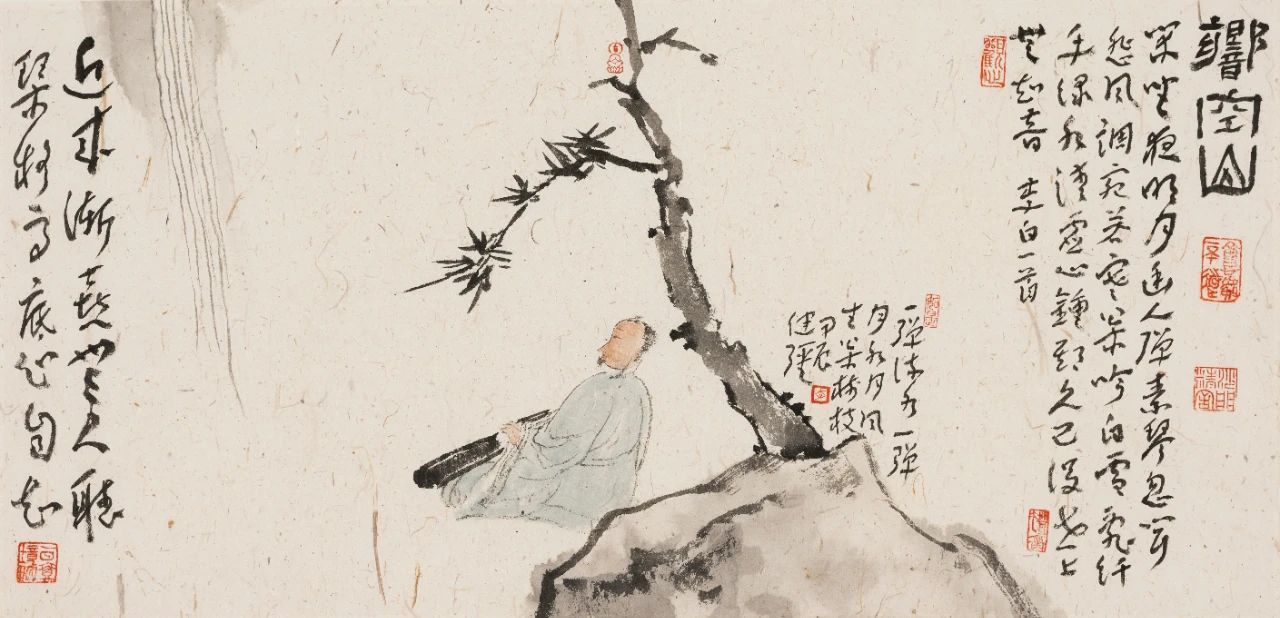 響空山
閑坐夜明月幽人彈素琴忽聞
悲風調宛若寒松吟白雪亂纖
手綠水清虛心鍾期久已没世上
無知音 李白一首
一彈流水一彈
月水月風
生松樹枝
甲辰
健強
近來漸喜無人聽
琴格高底心自知